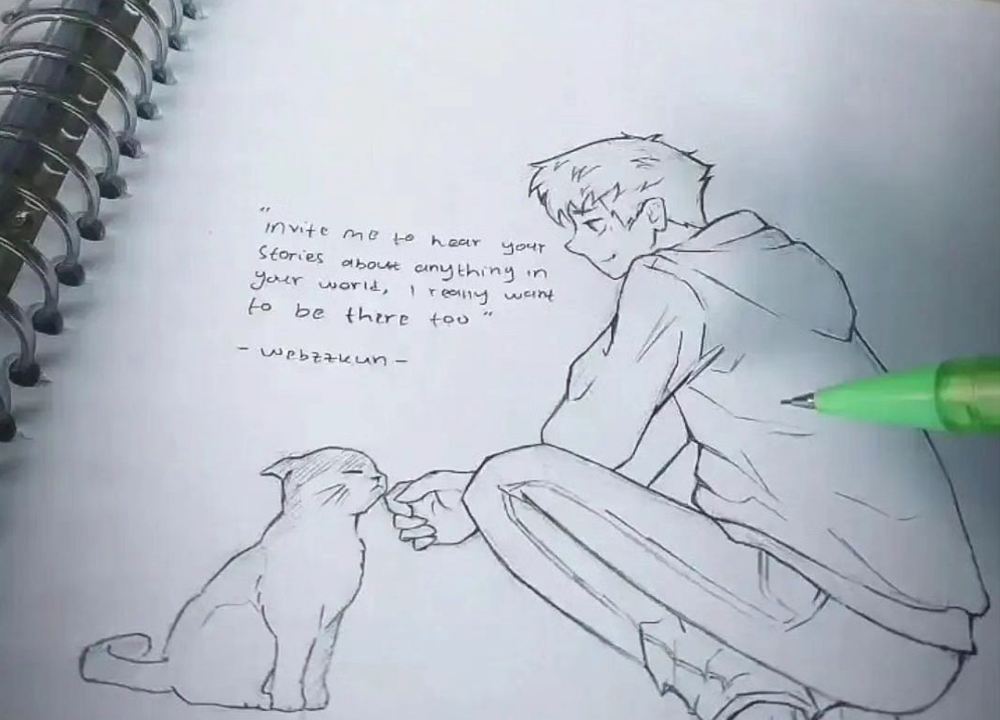 "
invite me to hear your
stories about anything in
your world, I really want
to be there too "
- webzzkun -